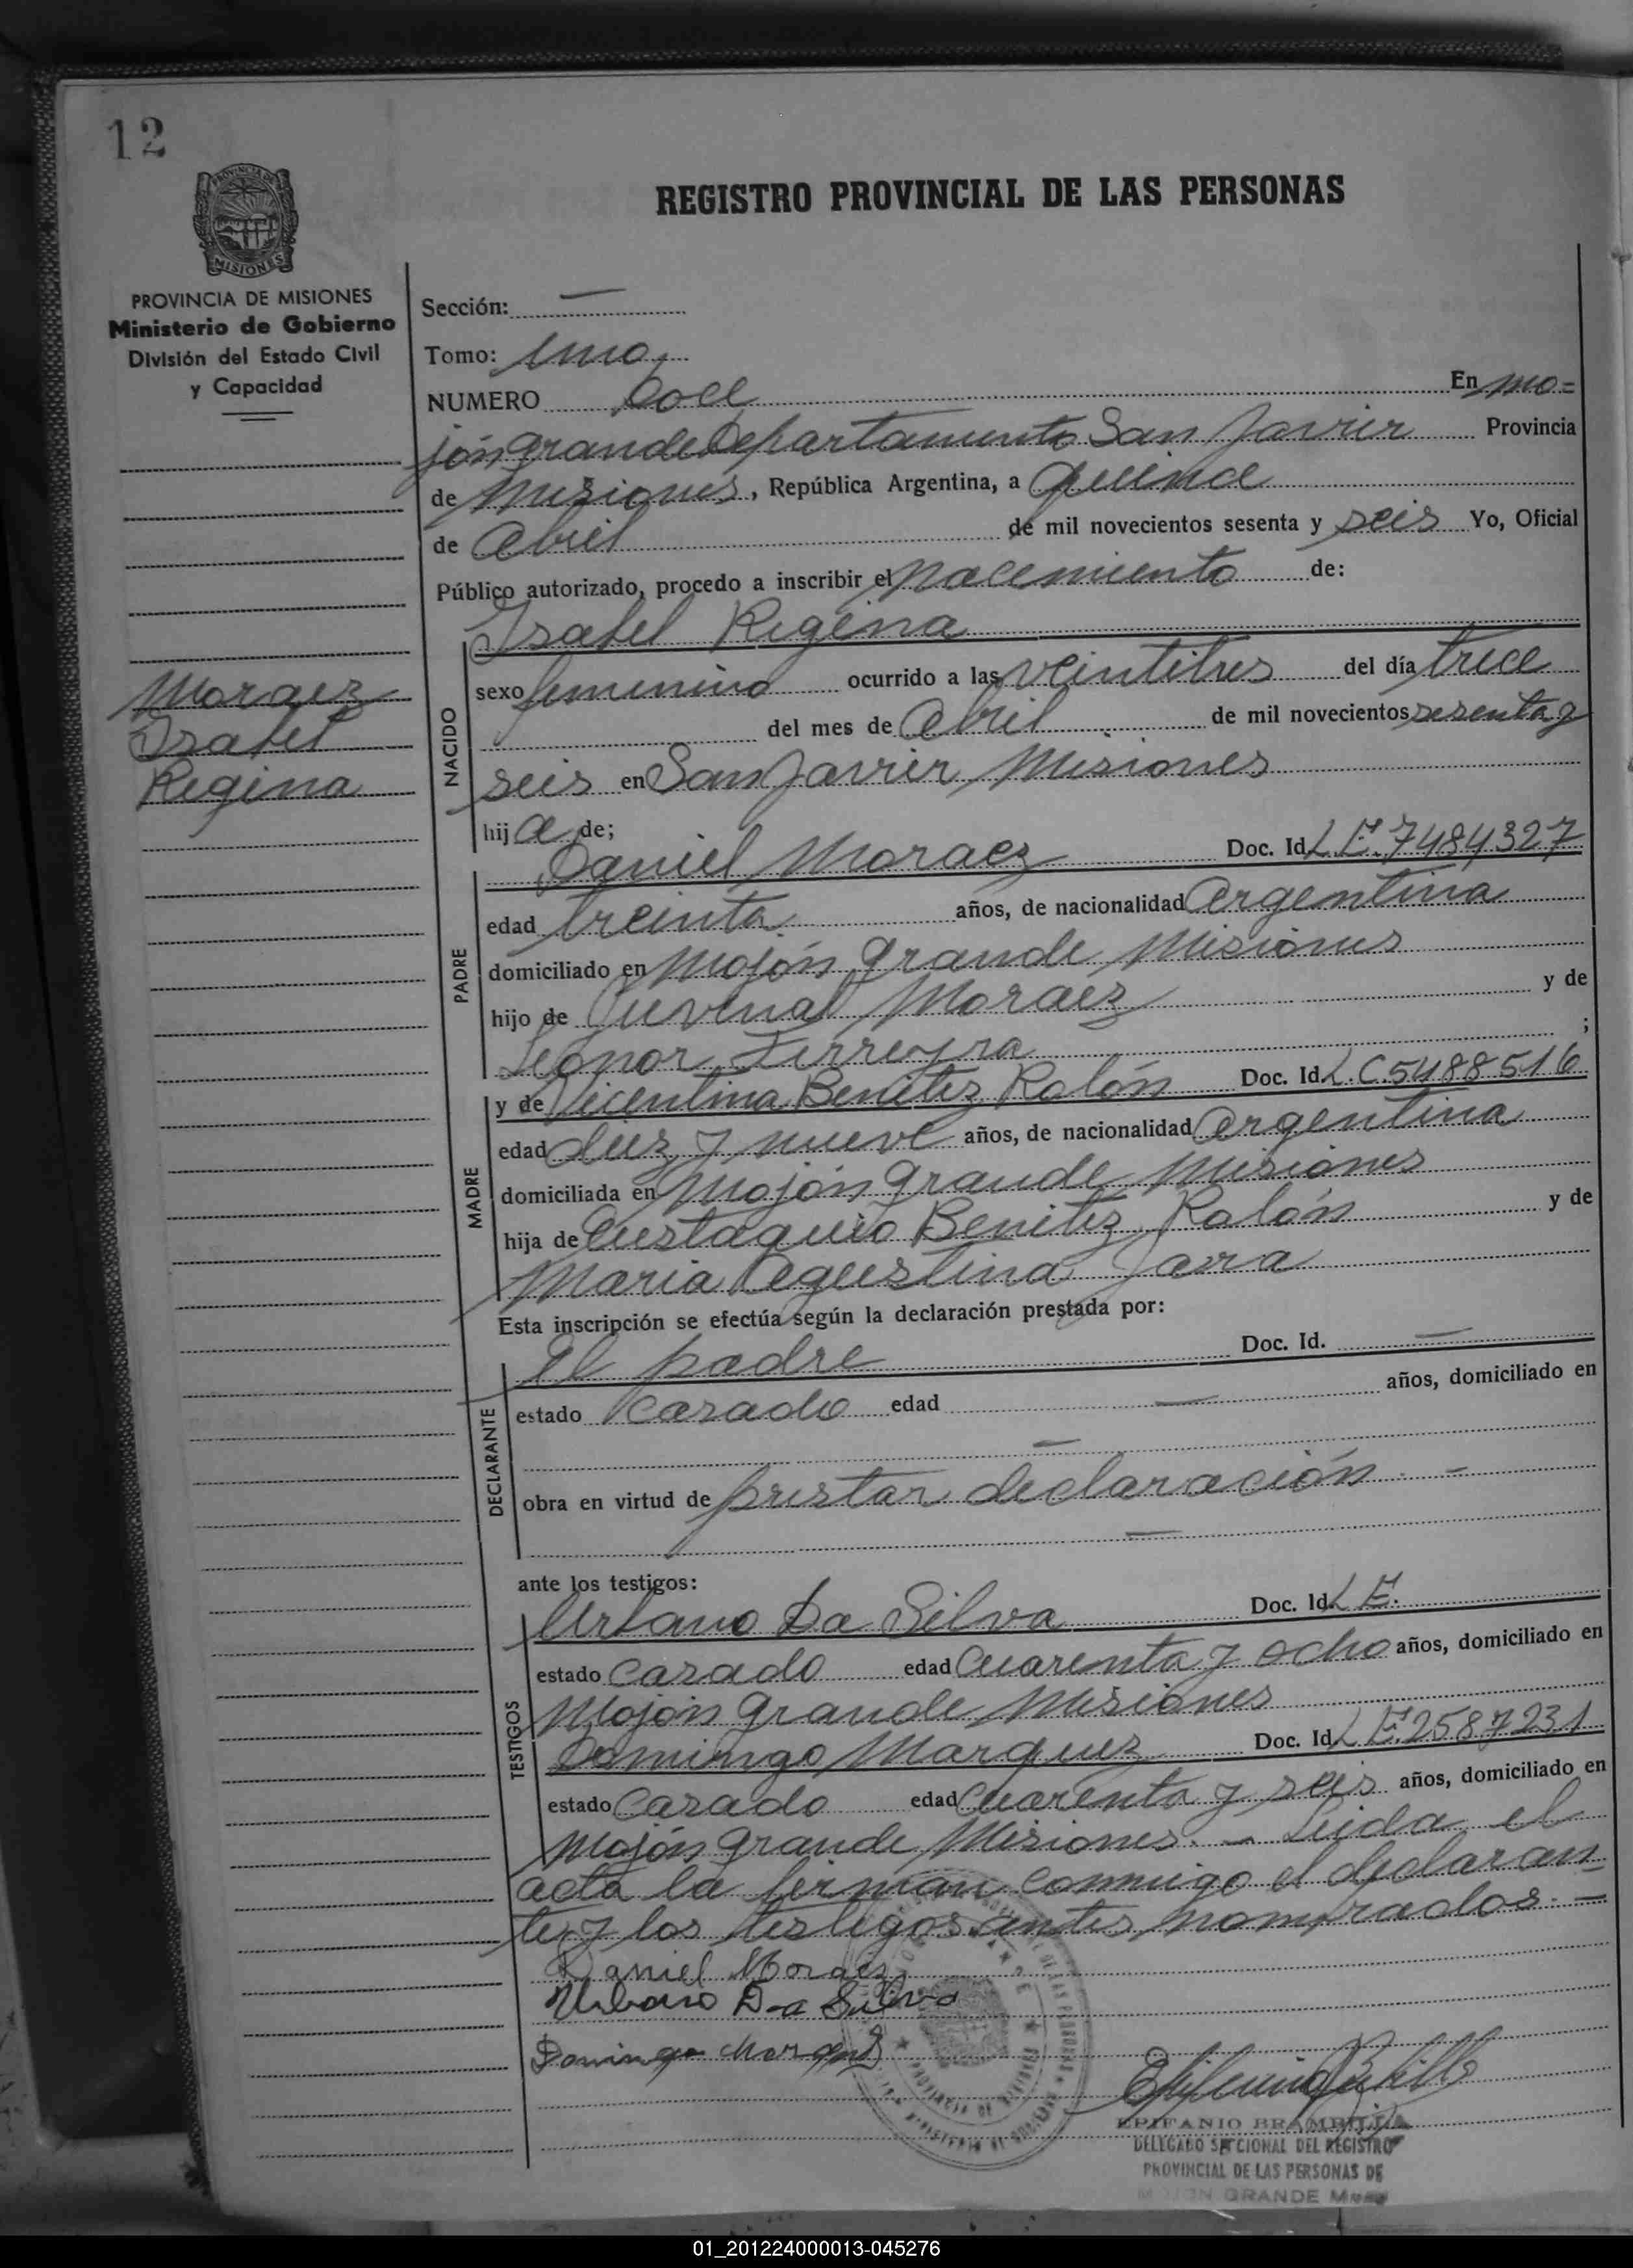 12
REGISTRO PROVINCIAL DE LAS PERSONAS
PROVINCIA DE MISIONES
MISIONES
PROVINCIA DE MISIONES
Ministerio de Gobierno
División del Estado Civil
y Capacidad
Moraez
Isabel
Regina
Sección: —
Tomo: uno
NUMERO Doce En mo=
jón grande Departamento San Javier Provincia
de Misiones, República Argentina, a quince
de Abril de mil novecientos sesenta y seis Yo, Oficial
Público autorizado, procedo a inscribir el nacimiento de:
Isabel Regina
NACIDO
sexo femenino ocurrido a las veintitres del día trece
del mes de Abril de mil novecientos sesenta y
seis en San Javier, Misiones
hija de;
PADRE
Daniel Moraez Doc. Id. L.E. 7484327
edad treinta años, de nacionalidad Argentina
domiciliado en Mojón grande, Misiones
hijo de Juvenal Moraez y de
Leonor Ferreyra ;
MADRE
y de Vicentina Benitez Rolón Doc. Id. L.C. 5488516
edad diez y nueve años, de nacionalidad Argentina
domiciliada en Mojón grande, Misiones
hija de Eustaquio Benitez Rolón y de
Maria Agustina Jara
Esta inscripción se efectúa según la declaración prestada por:
DECLARANTE
El padre Doc. Id. —
estado casado edad — años, domiciliado en
—
obra en virtud de prestar declaración. –
—
ante los testigos:
TESTIGOS
Urbano Da Silva Doc. Id. L.E.
estado casado edad cuarenta y ocho años, domiciliado en
Mojón grande, Misiones
Domingo Marquez Doc. Id. L.E. 2587231
estado casado edad cuarenta y seis años, domiciliado en
Mojón grande, Misiones. – Leida el
acta la firman conmigo el declaran=
te y los testigos antes nombrados. —
Daniel Moraez
Urbano Da Silva
Domingo Marquez
PROVINCIA DE MISIONES
EPIFANIO BRAMBILLA
DELEGADO SECCIONAL DEL REGISTRO
PROVINCIAL DE LAS PERSONAS DE
MOJON GRANDE
01_201224000013-045276